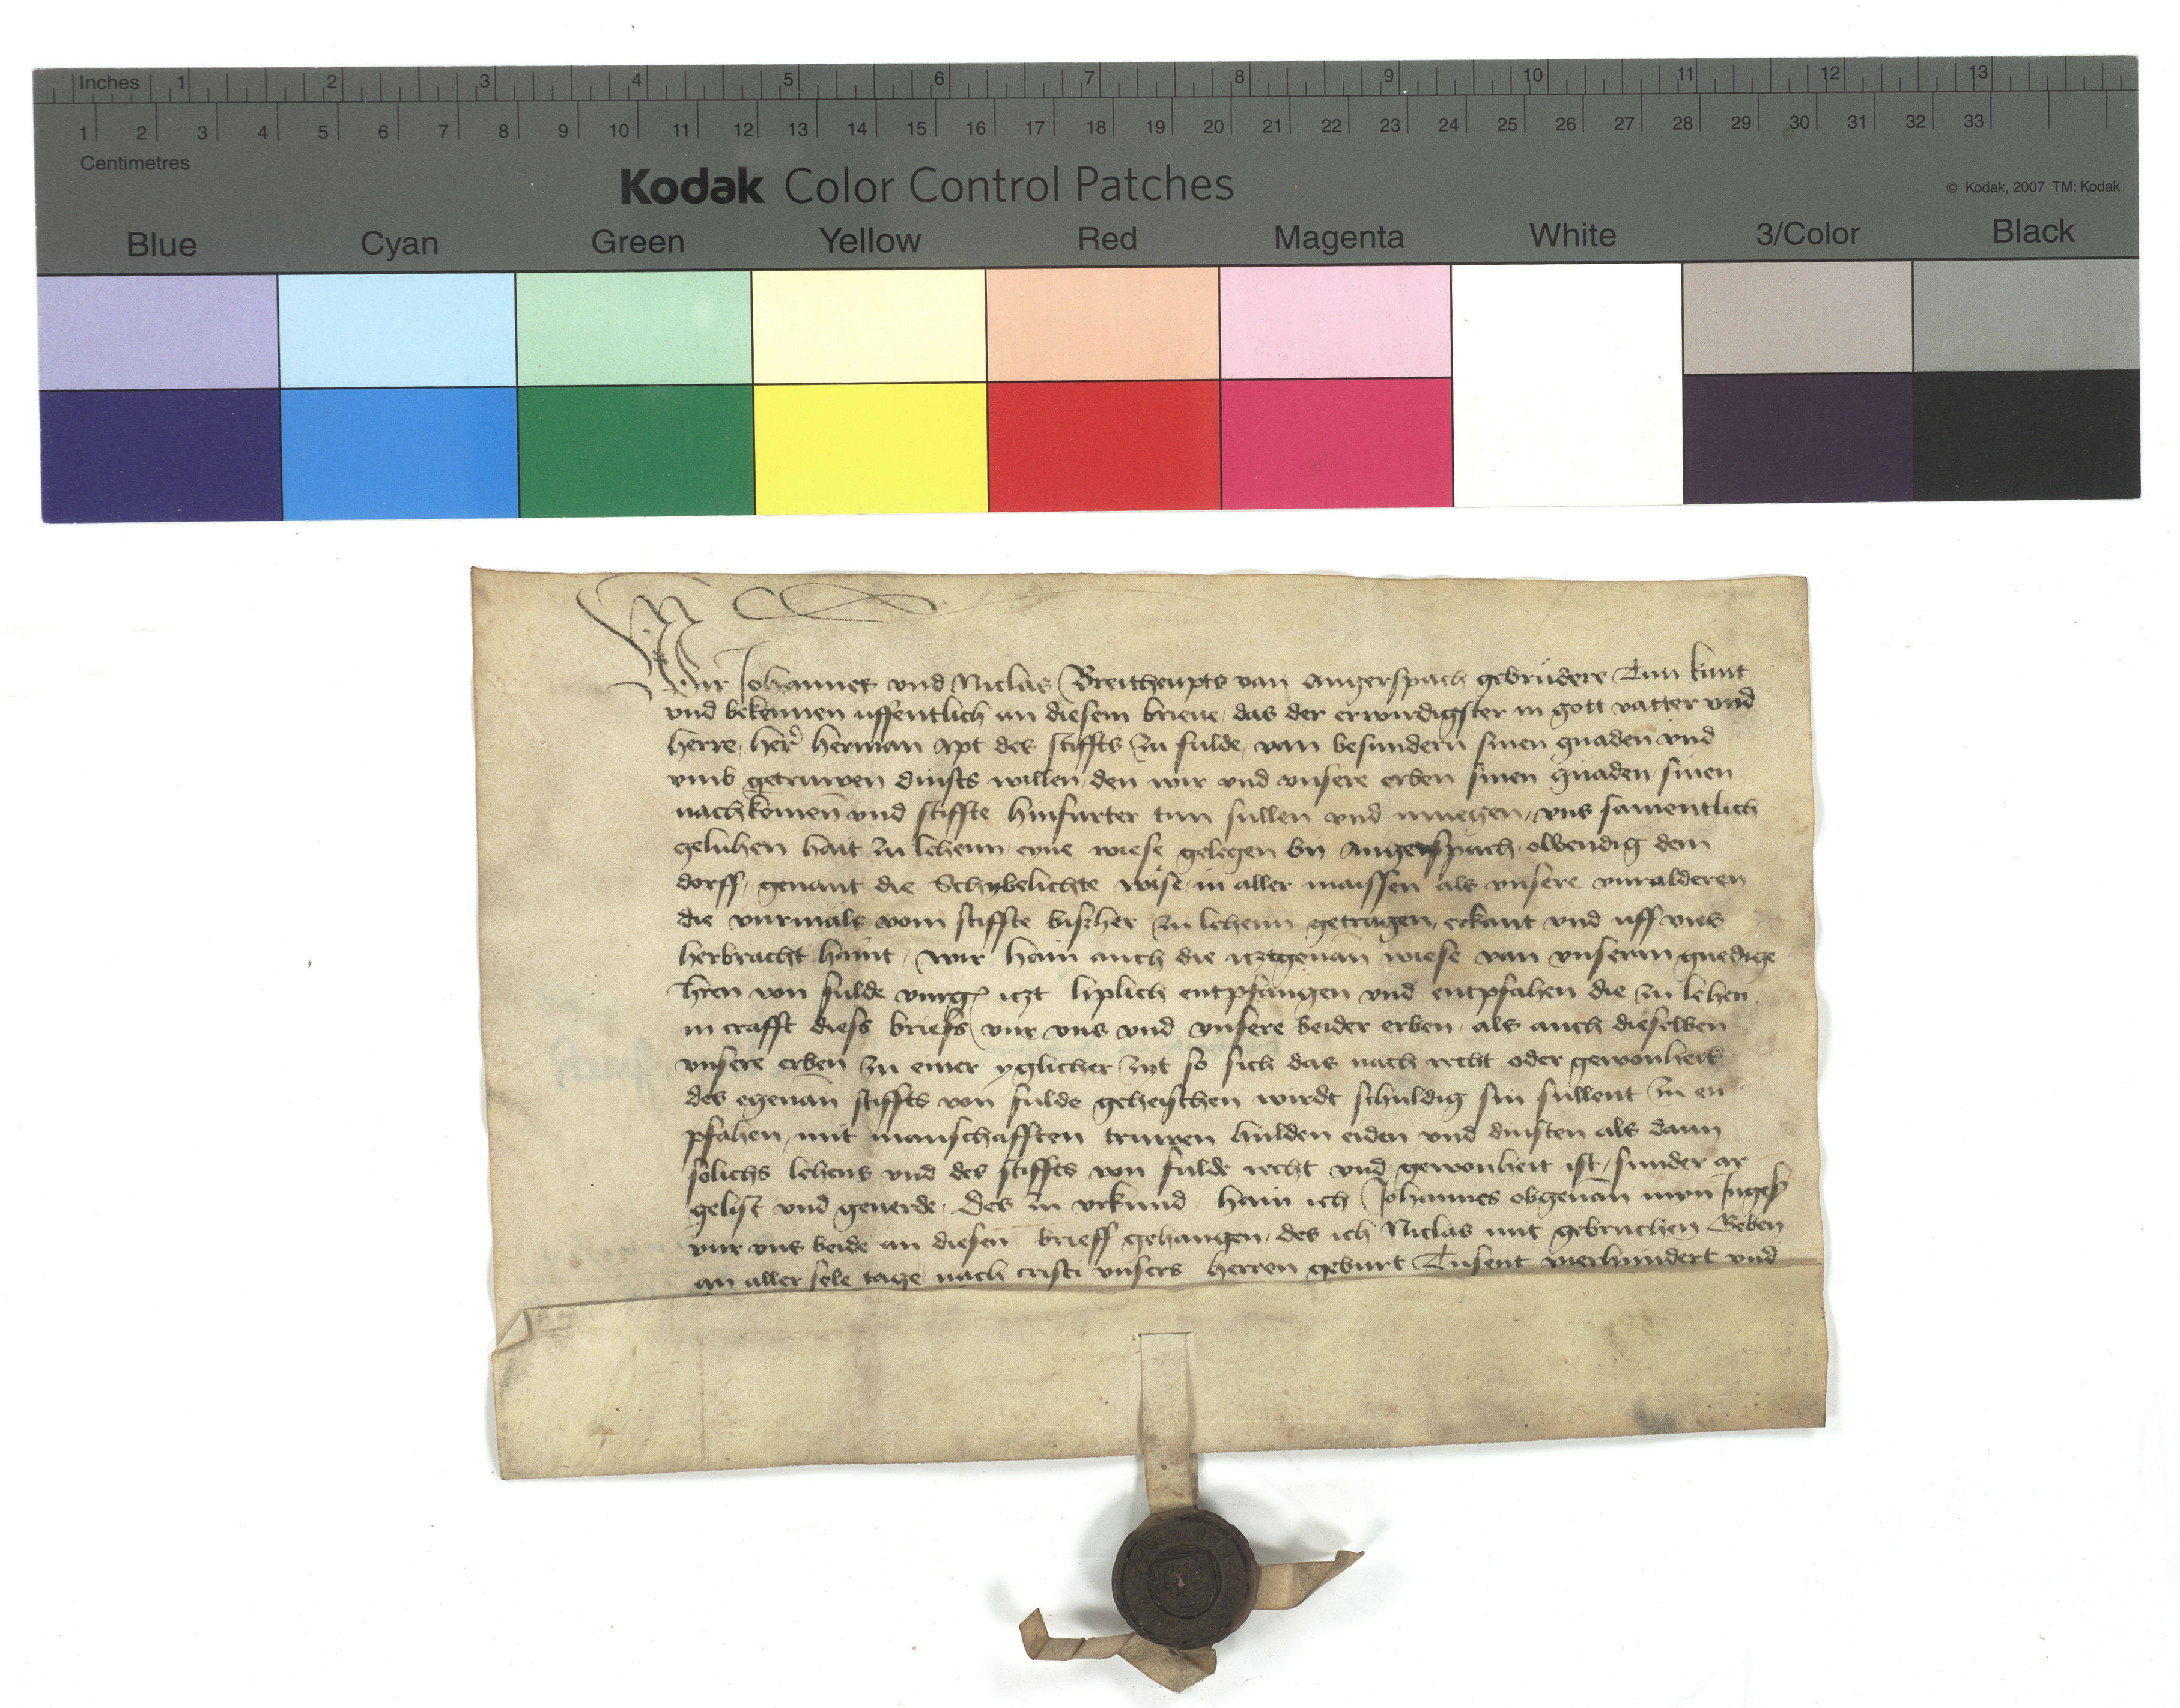 Inches 1 2 3 4 5 6 7 8 9 10 11 12 13
1 2 3 4 5 6 7 8 9 10 11 12 13 14 15 16 17 18 19 20 21 22 23 24 25 26 27 28 29 30 31 32 33
Centimetres
Kodak Color Control Patches
© Kodak, 2007 TM: Kodak
Blue Cyan Green Yellow Red Magenta White 3/Color Black
Wir Johannes vnd Niclas Breitheupts van Angerspach gebrudere Tun kunt
vnd bekennen uffentlich an diesem brieue, das der erwirdigster in gott vatter vnd
herre, her herman Apt des stiffts zu fulde, van besundern sinen gnaden vnd
vmb getruwen dinsts willen, den wir vnd vnsere erben sinen gnaden, sinen
nachkomen vnd stiffte hinfurter tun sullen vnd muegen, vns samentlich
geluhen hait zu lehenn, eyne wiese gelegen by Angerspach, obwendig dem
dorff, genant die Schybelichte wise, in aller maissen als vnsere vuralderen
die vurmals vom stiffte bisher zu lehenn getragen, erkant vnd uff vns
herbracht haint, wir hain auch die itztgenan wiese van vnserm gnedige
hren von fulde vurg itzt liplich entpfangen vnd entpfahen die zu lehen
in crafft diess briefs, vur vns vnd vnsere beider erben, als auch dieselben
vnsere erben zu einer yglicher zyt so sich das nach recht oder gewonheit
des egenan stiffts von fulde geheischen wirdt schuldig sin sullent zu en
pfahen, mit manschafften truwen hulden eiden vnd dinsten als dann
solichs lehens vnd des stiffts von fulde recht vnd gewonheit ist, sunder ar
gelist vnd geuerde, Des zu vrkund hain ich Johannes obgenan myn Inges
vur vns beide an diesen brieff gehangen, des ich Niclas mit gebruchen Geben
an aller sele tage nach cristi vnsers herren geburt Tusent vierhundert vnd